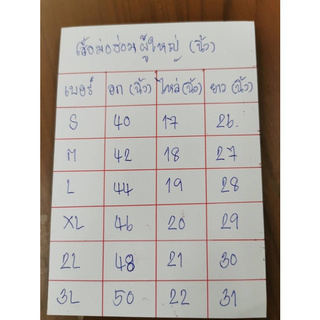 เสื้อม่อฮ่อมผู้ใหญ่ (นิ้ว)
เบอร์ อก (นิ้ว) ไหล่ (นิ้ว) ยาว (นิ้ว)
S 40 17 26
M 42 18 27
L 44 19 28
XL 46 20 29
2L 48 21 30
3L 50 22 31